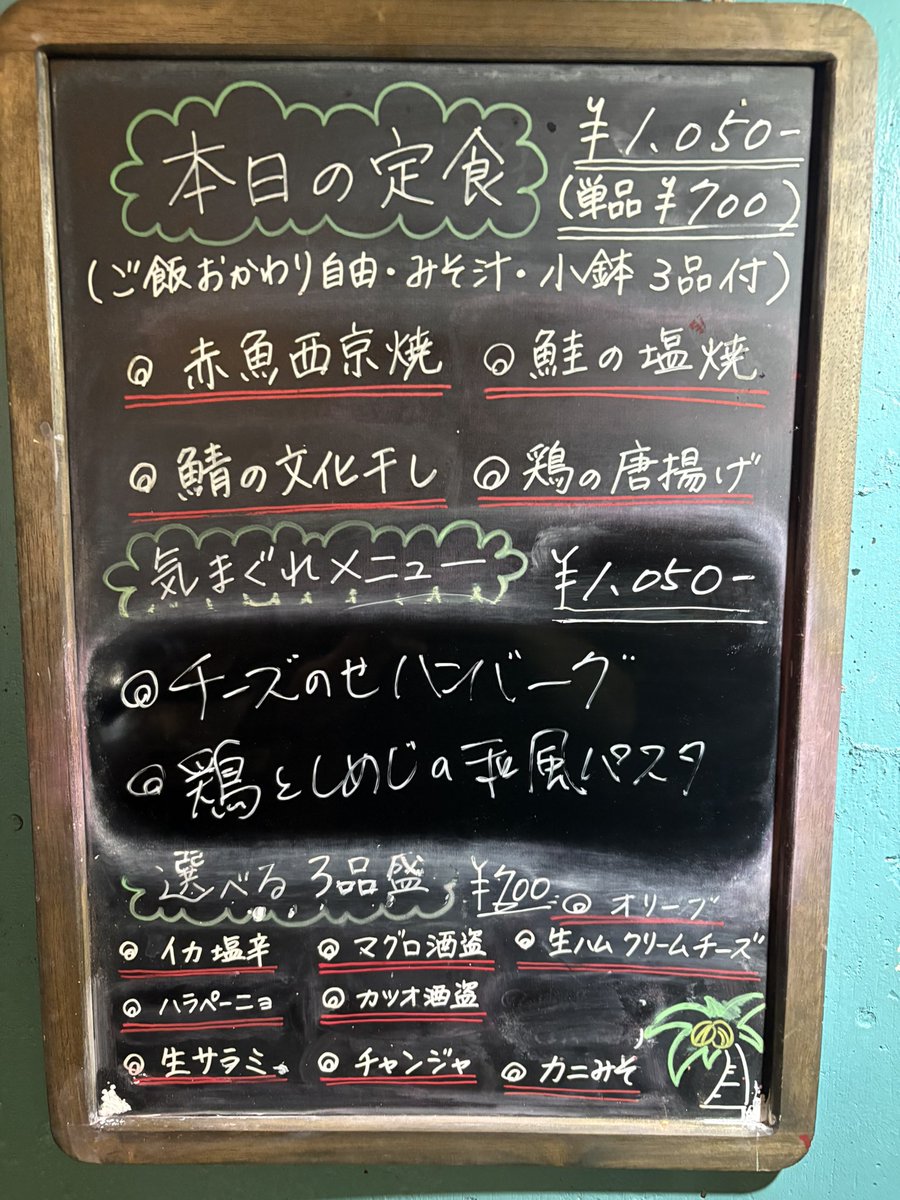 本日の定食 ¥1.050-
(単品¥700)
(ご飯おかわり自由・みそ汁・小鉢3品付)
◎赤魚西京焼 ◎鮭の塩焼
◎鯖の文化干し ◎鶏の唐揚げ
気まぐれメニュー ¥1.050-
◎チーズのせハンバーグ
◎鶏としめじの和風パスタ
選べる3品盛 ¥700 ◎オリーブ
◎イカ塩辛 ◎マグロ酒盗 ◎生ハムクリームチーズ
◎ハラペーニョ ◎カツオ酒盗
◎生サラミ ◎チャンジャ ◎カニみそ